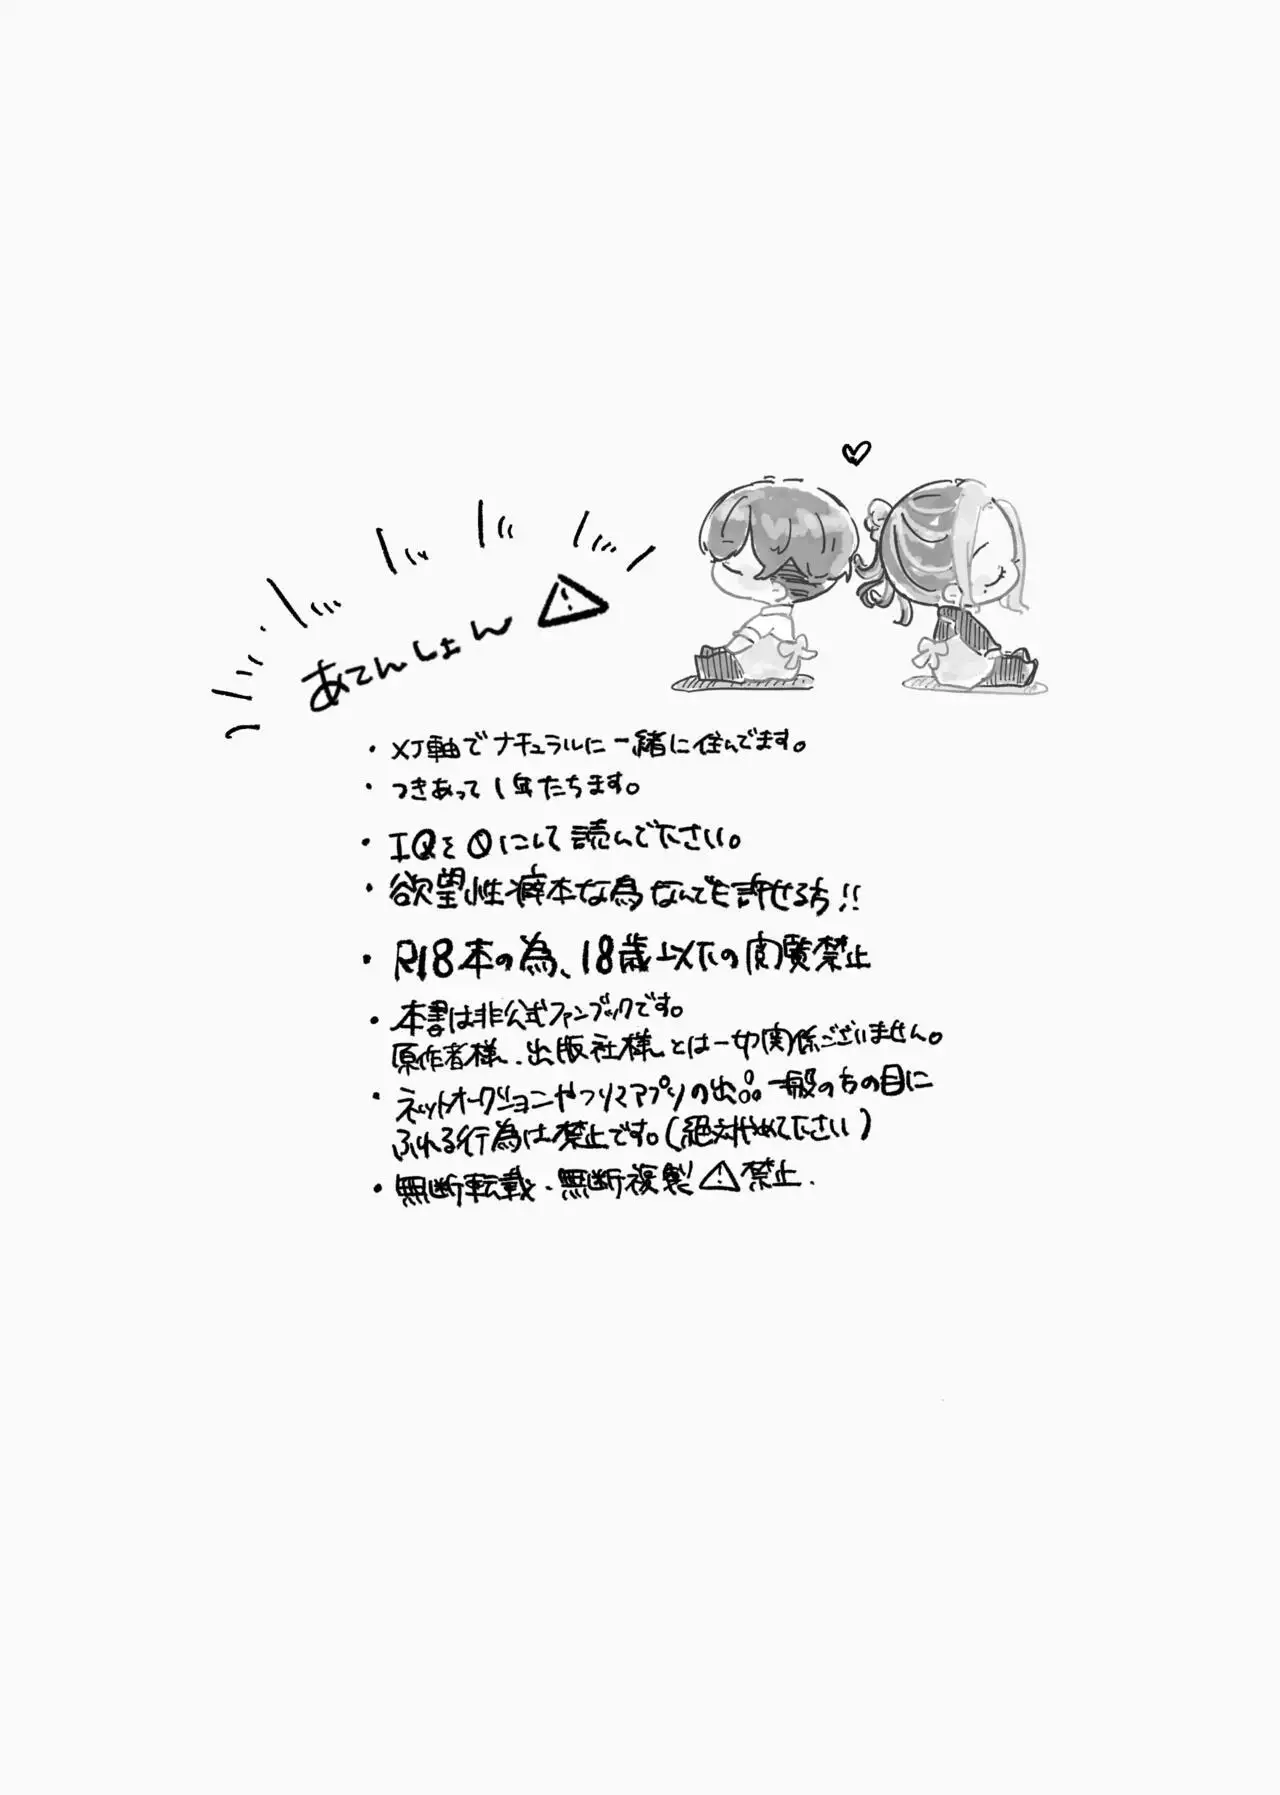 あてんしょん
・XJ軸でナチュラルに一緒に住んでます。
・つきあって1年たちます。
・IQを0にして読んで下さい。
・欲望性癖本な為なんでも許せる方!!
・R18本の為、18歳以下の閲覧禁止
・本書は非公式ファンブックです。
原作者様、出版社様とは一切関係ございません。
・ネットオークションやフリマアプリの出品 一般の方の目に
ふれる行為は禁止です。(絶対やめて下さい)
・無断転載・無断複製⚠禁止.